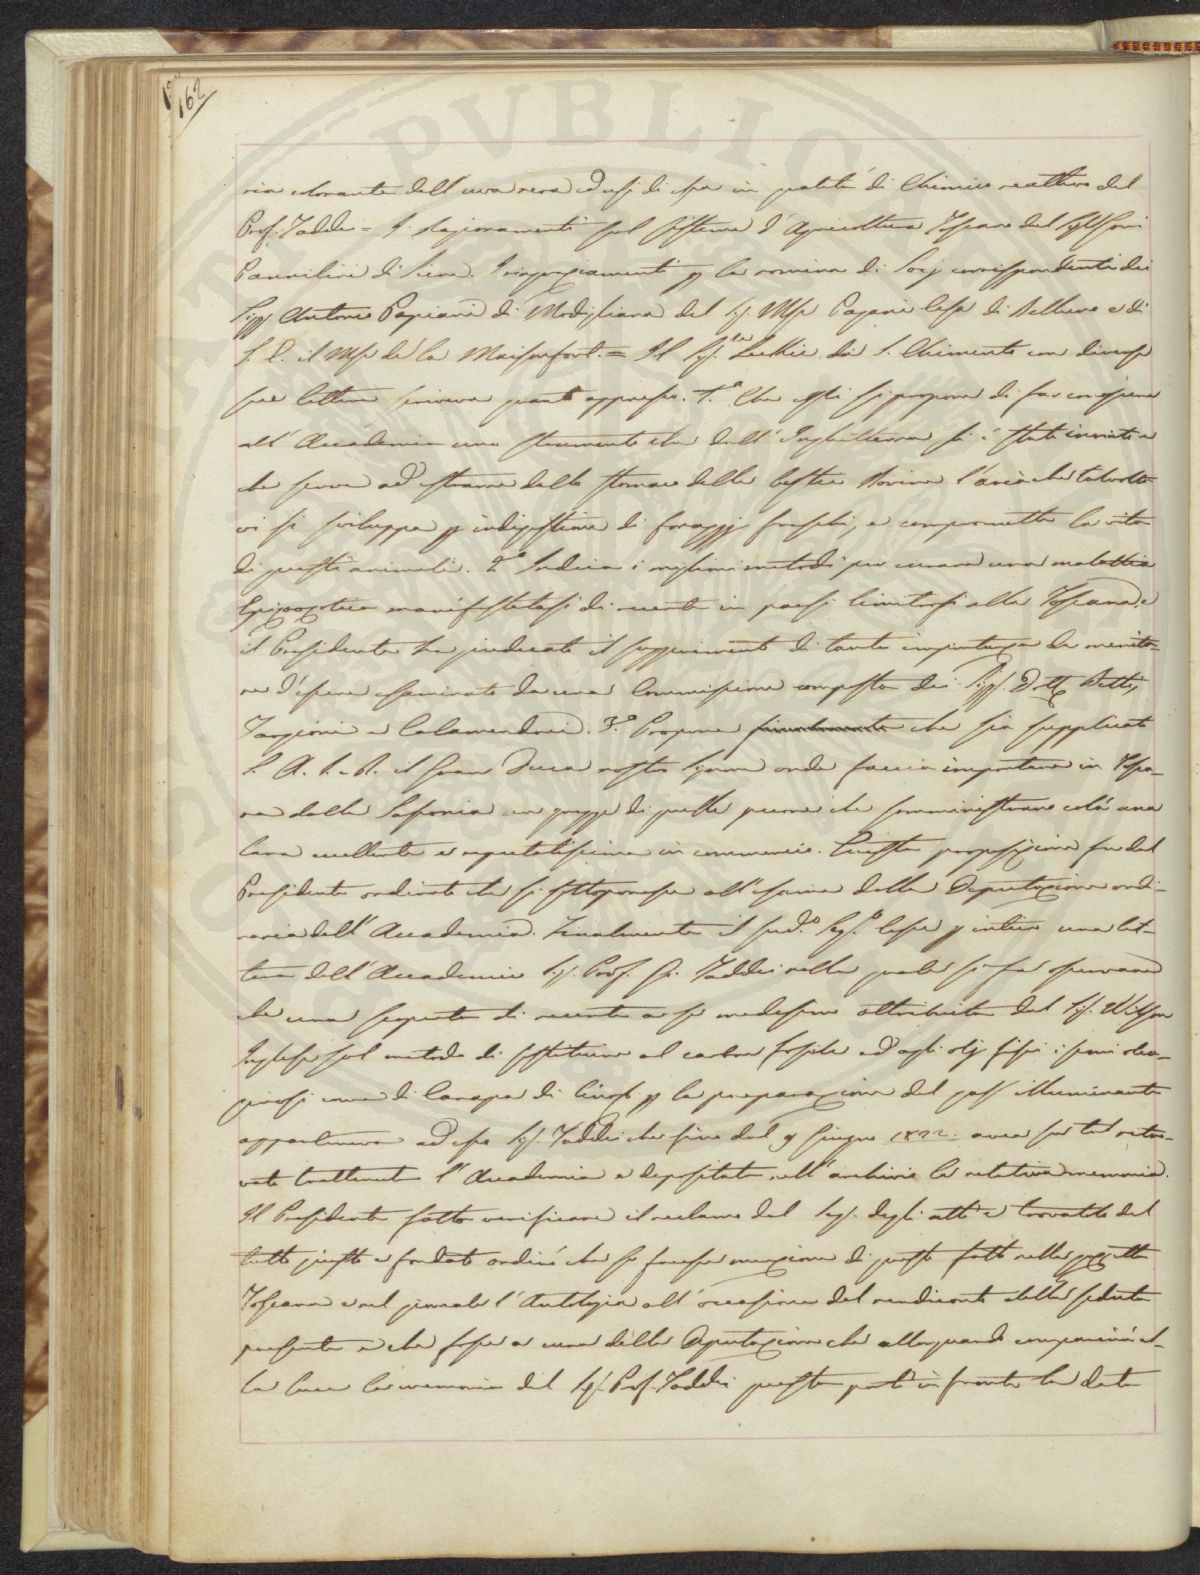 162
ria colorante dell'uva nera ed usi di essa in qualità di Chimico reattivo del
Prof. Taddei = I ragionamenti sul sistema d'Agricoltura Toscana del Sig.
Pannilini di Siena. I ringraziamenti p la nomina di Socj corrispondenti dei
Sigg Antonio Papiani di Modigliana del Sig. Mse Pagani Cesa di Belluno e di
S. E. il Mse de la Maisonfort. = Il Sig. Leckie da S. Chimento con diverse
sue lettere scriveva quanto appresso. 1.o Che egli si propone di far conoscere
all'Accademia uno strumento che dall'Inghilterra gli è stato inviato e
che serve ad estrarre dallo stomaco delle bestie Bovine l'aria che talvolta
vi si sviluppa p indigestione di foraggi freschi, e compromette la vita
di questi animali. 2.o Indica i migliori metodi per curare una malattia
Epizootica manifestatasi di recente in paesi limitrofi alla Toscana, e
il Presidente ha giudicato il suggerimento di tanta importanza da merita-
re d'essere esaminato da una Commissione composta dei Sigg. Dott. Betti,
Targioni e Calamandrei. 3.o Propone finalmente che sia supplicato
S. A. I. e R. il Gran Duca nostro Signore onde faccia importare in Tosca-
na dalla Sassonia un gregge di quelle pecore che somministrano colà una
lana eccellente e reputatissima in commercio. Questa proposizione fu dal
Presidente ordinato che si sottoponesse all'esame della Deputazione ordi-
naria dell'Accademia. Finalmente il sud.o Seg.o lesse p intiero una let-
tera dell'Accademico Sig. Prof. G. Taddei nella quale si fa osservare
che una scoperta di recente a se medesimo attribuita dal Sig. Wilson
Inglese sul metodo di sostituire al carbon fossile ed agli olj fissi i semi olea-
ginosi come di Canapa di Lino p la preparazione del gass illuminante
apparteneva ad esso Sig. Taddei che fino dal 9 Giugno 1822. avea su tal ritro-
vato trattenuto l'Accademia e depositata nell'archivio la relativa memoria.
Il Presidente fatto verificare il reclamo dal Seg. degli atti e trovatolo del
tutto giusto e fondato ordinò che si facesse menzione di questo fatto nella gazzetta
Toscana e nel giornale l'Antologia all'occasione del rendiconto della seduta
presente e che fosse a cura della Deputazione che allorquando comparirà al-
la luce la memoria del Sig. Prof. Taddei questa porti in fronte la data